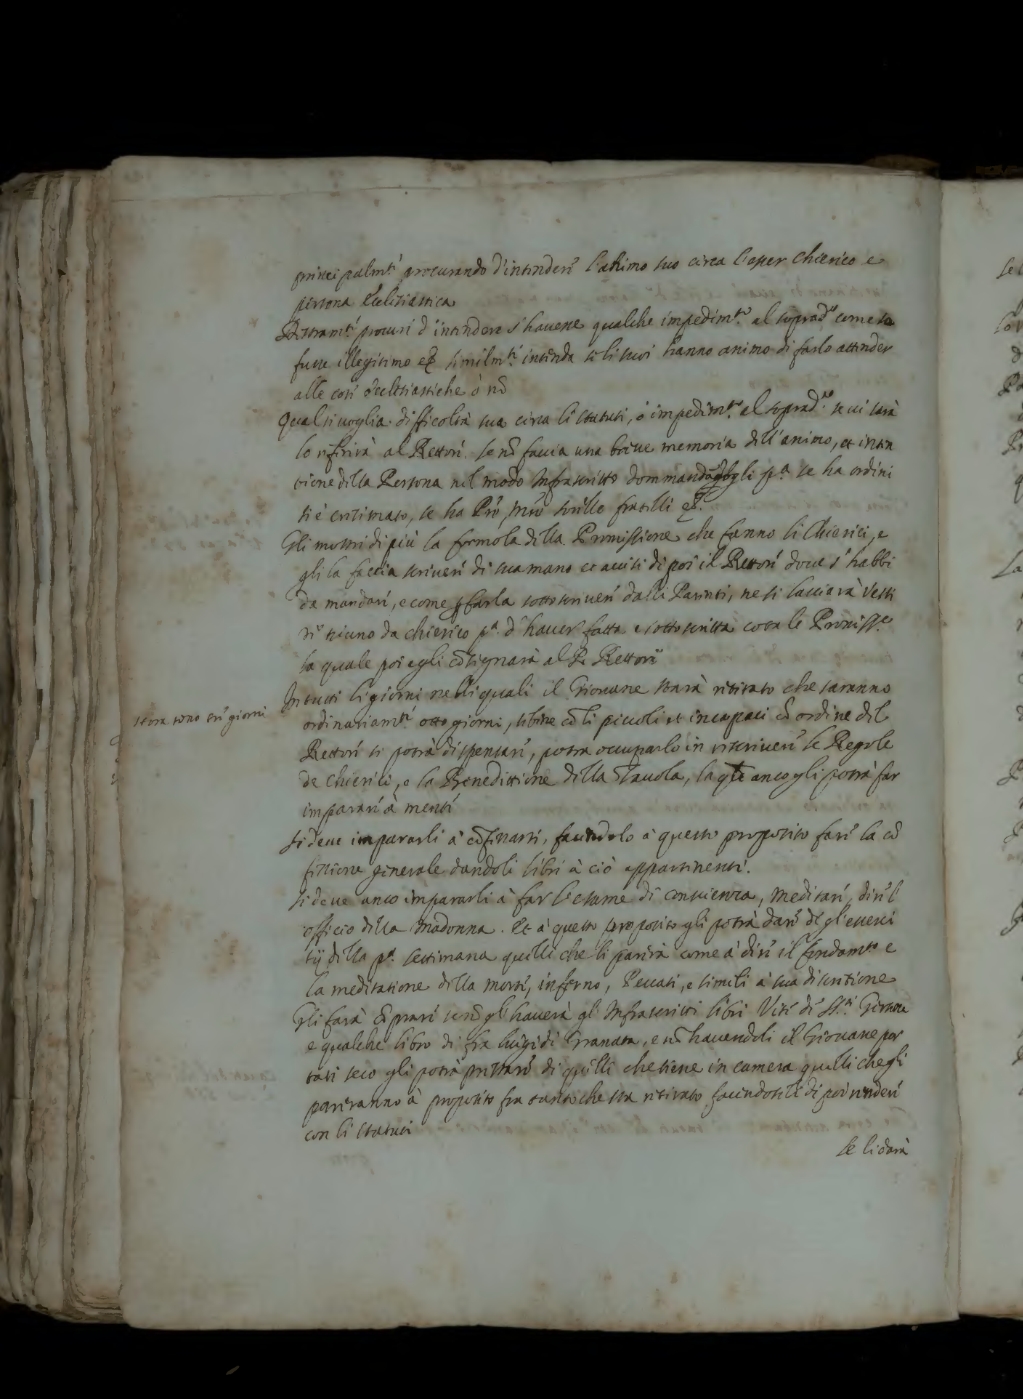 principalm.te procurando d'intendere l'animo suo circa l'esser Chierico e
persona Ecclesiastica
procuri d'intendere s'havesse qualche impedim.to al soprad.o come se
fusse illegitimo etc. similm.te intenda se li suoi hanno animo di farlo attender
alle cose ecclesiastiche ò nõ
Qualsivoglia difficoltà sua circa li statuti, ò impedim.to al soprad.o se vi sarà
lo riferirà al Rettore. se ne faccia una breve memoria dell'animo, et inten
tione della Persona nel modo Infrascritto dommandãdogli p.a se ha ordini
se è cresimato, se ha Prẽ, Mrẽ sorelle fratelli etc.
Gli mostri di più la formola della Promissione che fanno li Chierici, e
gli la faccia scrivere di sua mano et avvisi di poi il Rettore dove s'habbi
da mandare, e come p farla sottoscrivere dalli Parenti, ne si lasciarà vesti
re niuno da chierico p.a d'haver fatta e sottoscritta cotale Promiss.e
la quale poi egli cõsignarà al P. Rettore
In tutti li giorni nelli quali il Giovane starà ritirato che saranno
hora sono tre giorni
ordinariam.te otto giorni, sibene cõ li piccoli et incapaci cõ ordine del
Rettore si potrà dispensare, potrà occuparlo in riscrivere le Regole
de Chierici, e la Benedittione della Tavola, la qle anco gli potrà far
imparare à mente
Si deve impararli à cõfessarsi, facendolo à questo proposito fare la cõ
fessione generale dandoli libri à ciò appartinenti.
Si deve anco impararli à far l'esame di conscienza, meditare, dire l'
officio della Madonna. Et à questo proposito gli potrà dare de gl'esserci
tij della p.a settimana quelli che li parerà come à dire il fondam.to e
la meditatione della morte, inferno, Peccati, e simili à sua discretione
Gli farà cõprare se nõ gl'haverà gl'Infrascritti libri Vite di Sti. Gersone
e qualche libro di fra Luigi di Granata, e nõ havendoli il Giovane por
tati seco gli potrà prestare di quelli che tiene in camera quelli che gli
pareranno à proposito fra tanto che sta ritirato facendoseli di poi rendere
con li statuti
Se li darà